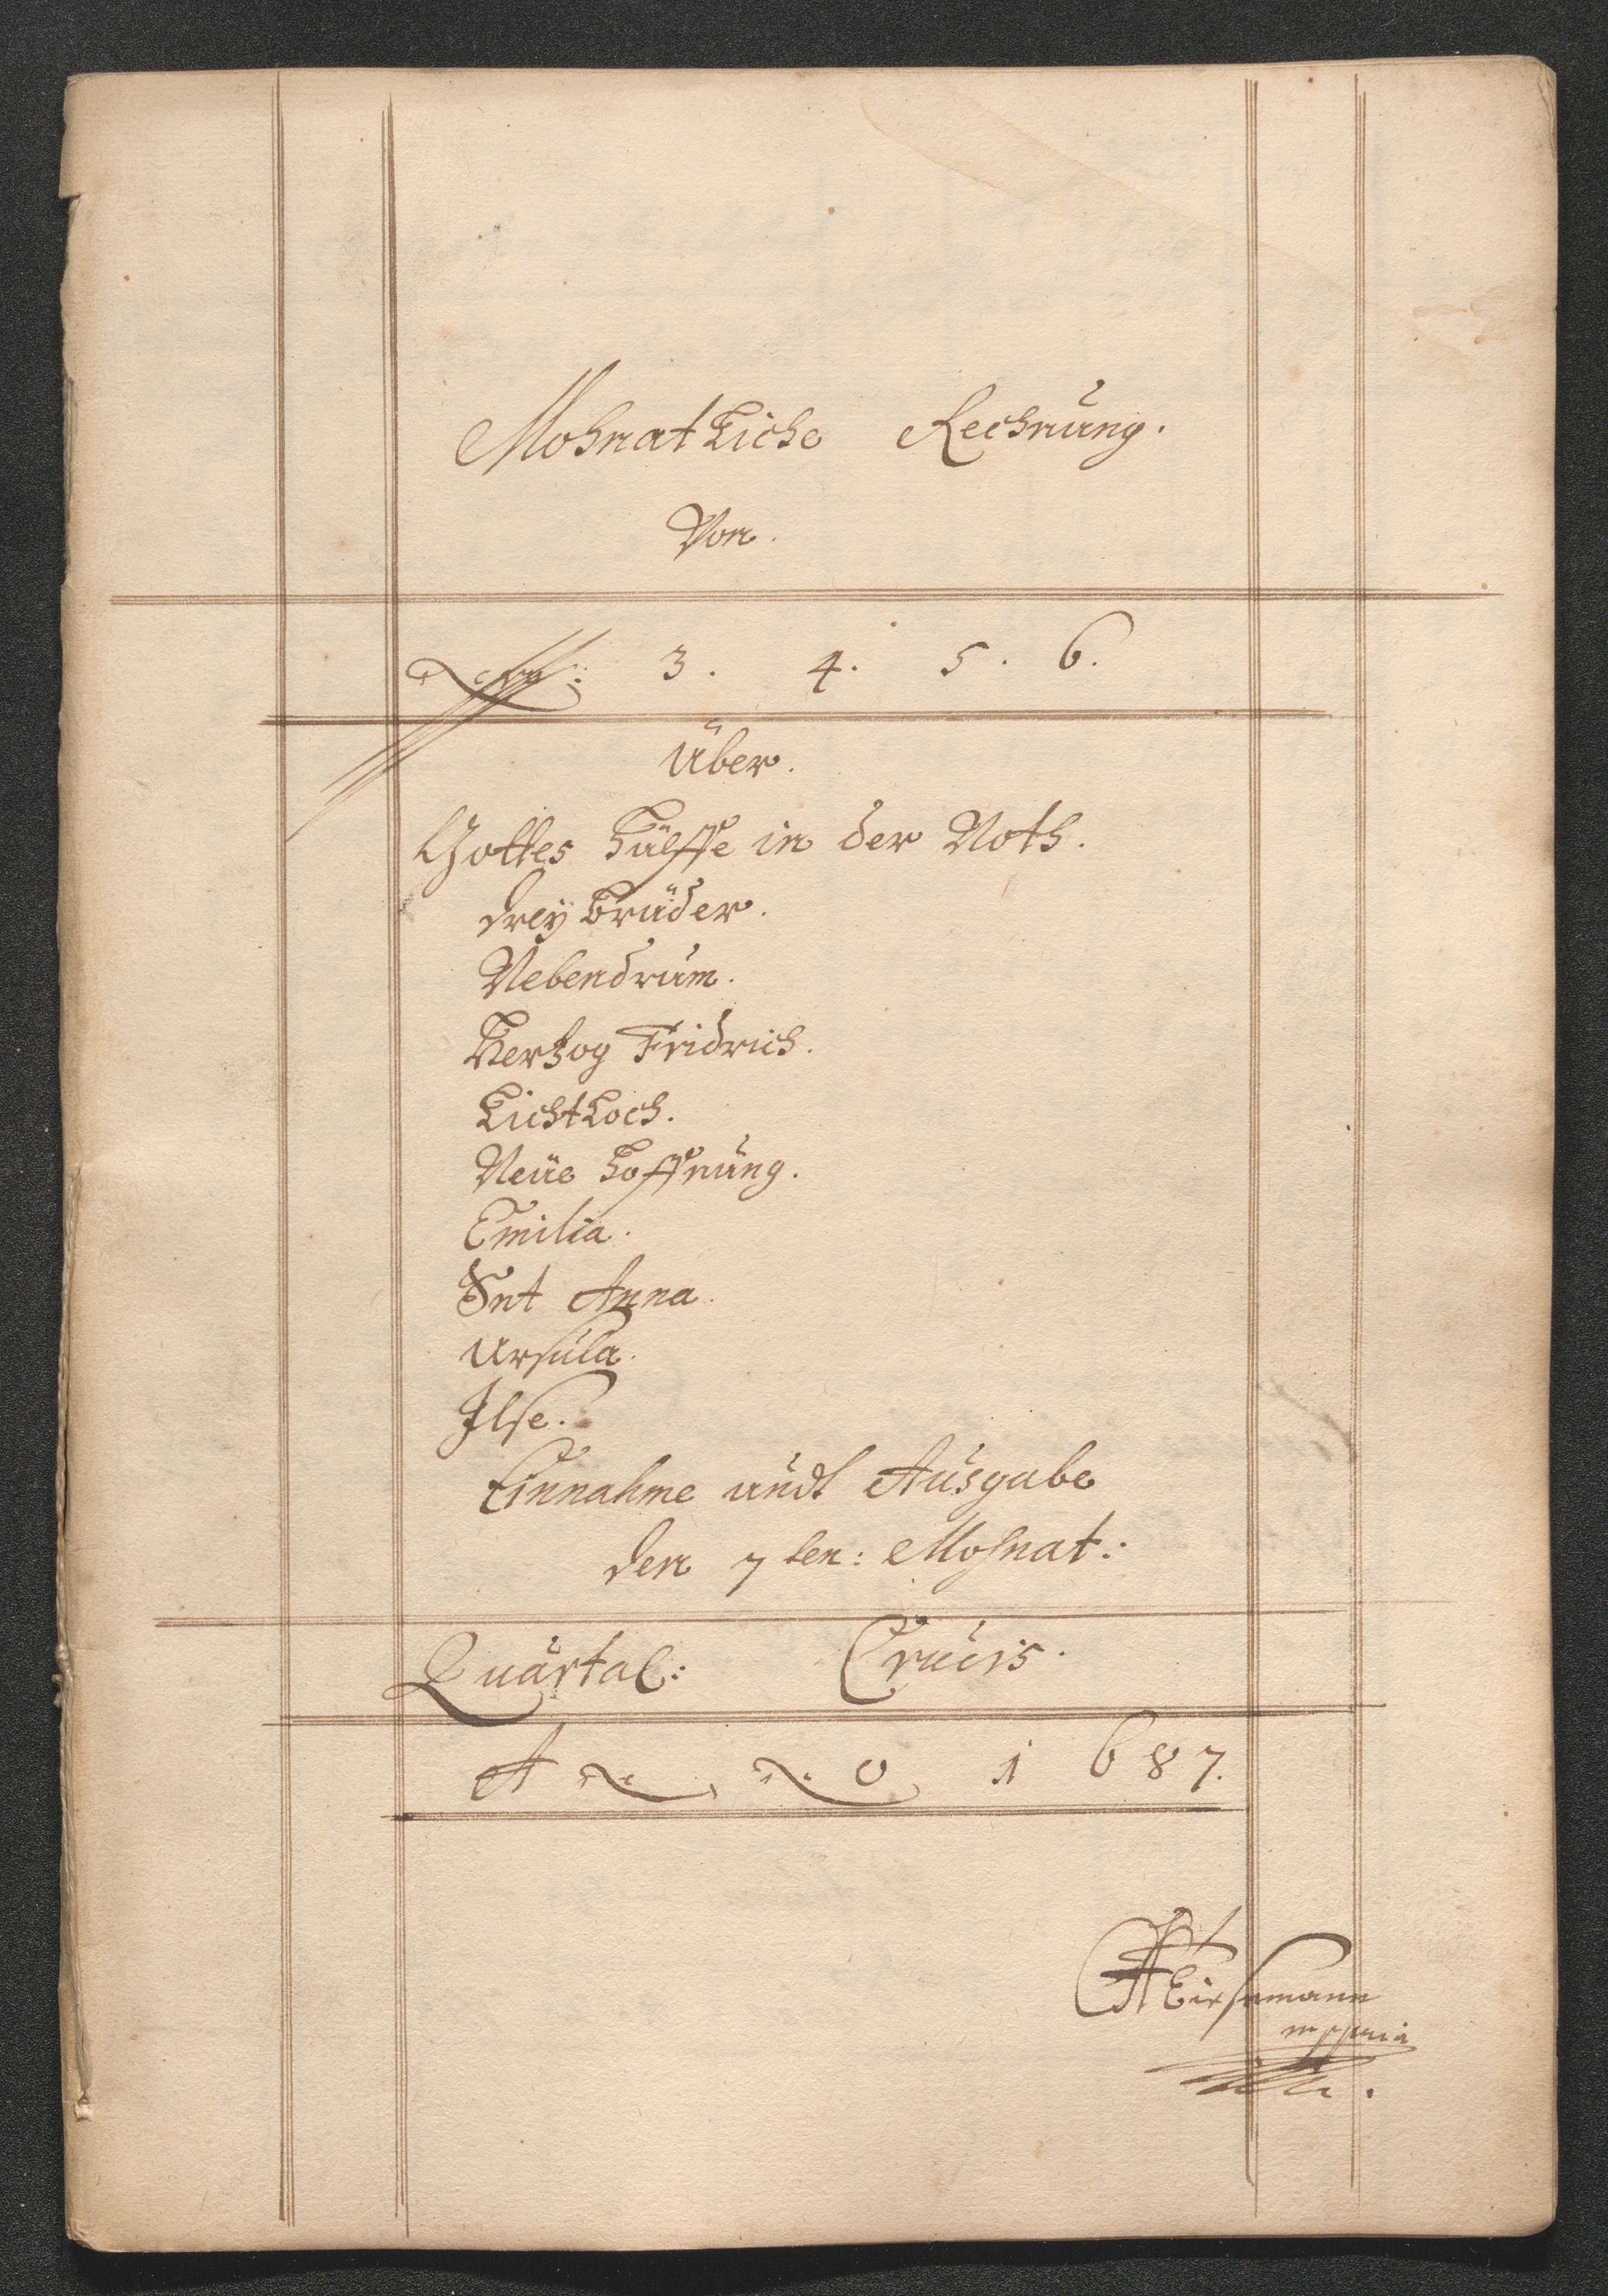 Mohnatliche Rechnung.
Von.
3. 4. 5. 6.
Über.
Gottes hülffe in der Noth.
drey brüder.
Nebendrum.
Hertzog Fridrich.
Lichtloch.
Neue hoffnung.
Emilia.
Snt Anna.
Ursula.
Ilse.
Einnahme undt Ausgabe
den 7ten: Mohnat:
Quartal: Crucis.
Anno 1687.
mppria